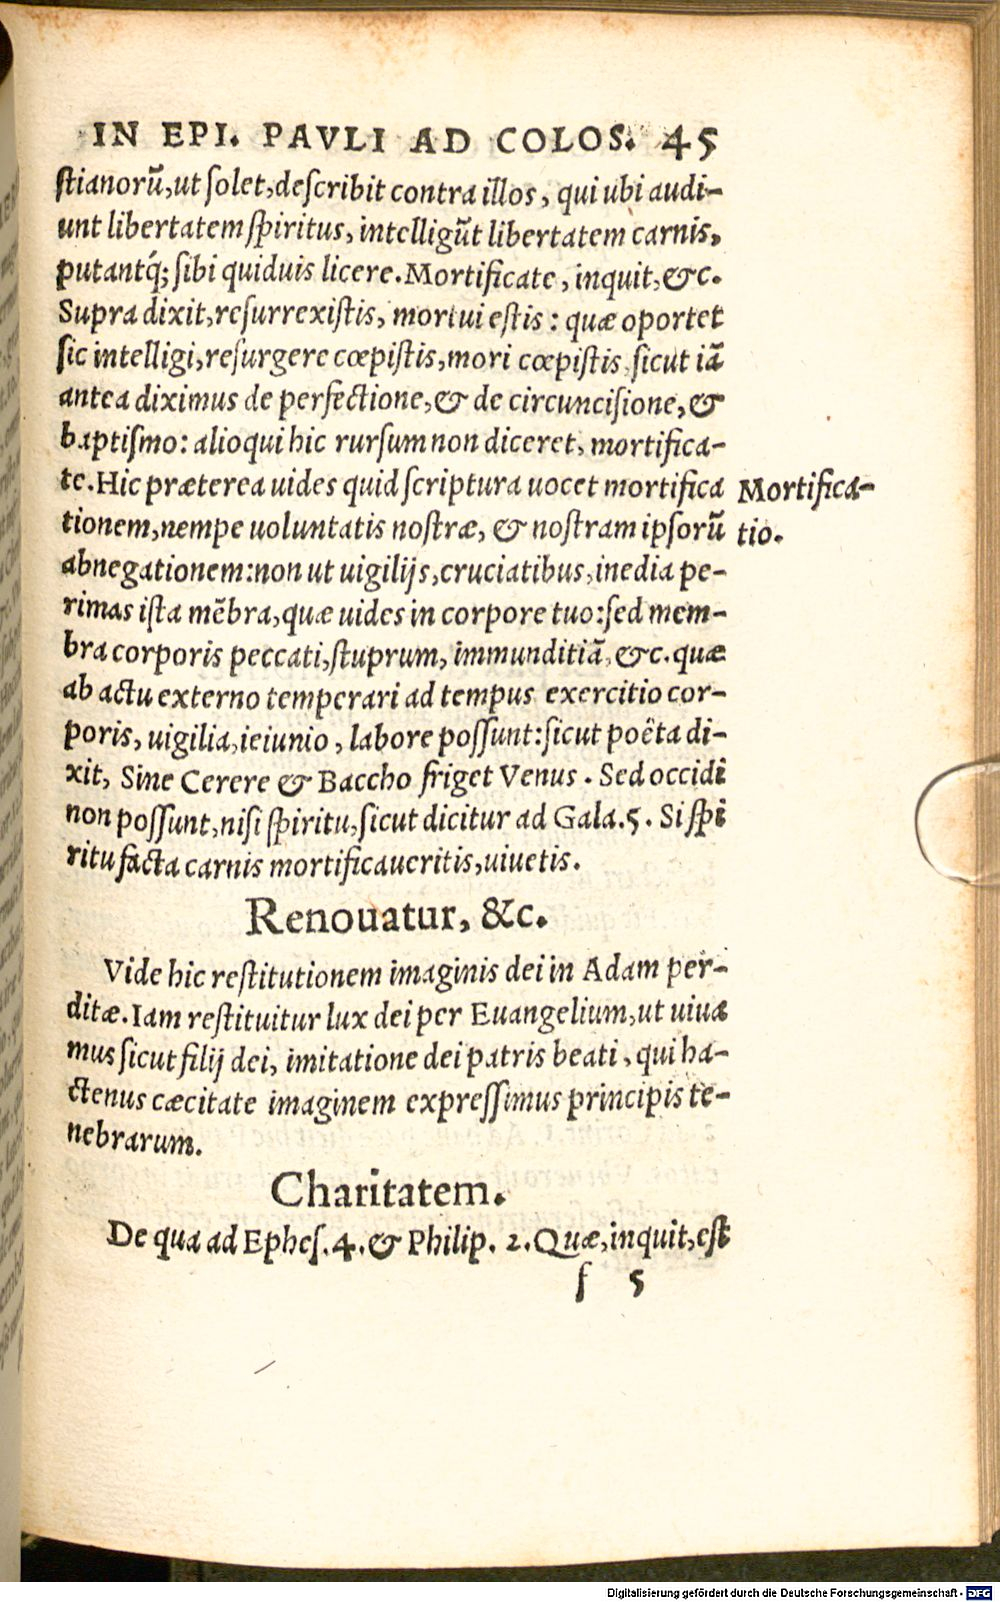 IN EPI. PAVLI AD COLOS. 45
stianorũ, ut solet, describit contra illos, qui ubi audi-
unt libertatem spiritus, intelligũt libertatem carnis,
putantq́; sibi quiduis licere. Mortificate, inquit, &c.
Supra dixit, resurrexistis, mortui estis: quæ oportet
sic intelligi, resurgere cœpistis, mori cœpistis, sicut iã
antea diximus de perfectione, & de circuncisione, &
baptismo: alioqui hic rursum non diceret, mortifica-
te. Hic præterea uides quid scriptura uocet mortifica
Mortifica-
tionem, nempe uoluntatis nostræ, & nostram ipsorũ
tio.
abnegationem: non ut uigilijs, cruciatibus, inedia pe-
rimas ista mẽbra, quæ uides in corpore tuo: sed mem-
bra corporis peccati, stuprum, immunditiã, &c. quæ
ab actu externo temperari ad tempus exercitio cor-
poris, uigilia, ieiunio, labore possunt: sicut poëta di-
xit, Sine Cerere & Baccho friget Venus. Sed occidi
non possunt, nisi spiritu, sicut dicitur ad Gala. 5. Si spi
ritu facta carnis mortificaueritis, uiuetis.
Renouatur, &c.
Vide hic restitutionem imaginis dei in Adam per-
ditæ. Iam restituitur lux dei per Euangelium, ut uiua
mus sicut filij dei, imitatione dei patris beati, qui ha-
ctenus cæcitate imaginem expressimus principis te-
nebrarum.
Charitatem.
De qua ad Ephes. 4. & Philip. 2. Quæ, inquit, est
f 5
Digitalisierung gefördert durch die Deutsche Forschungsgemeinschaft - DFG